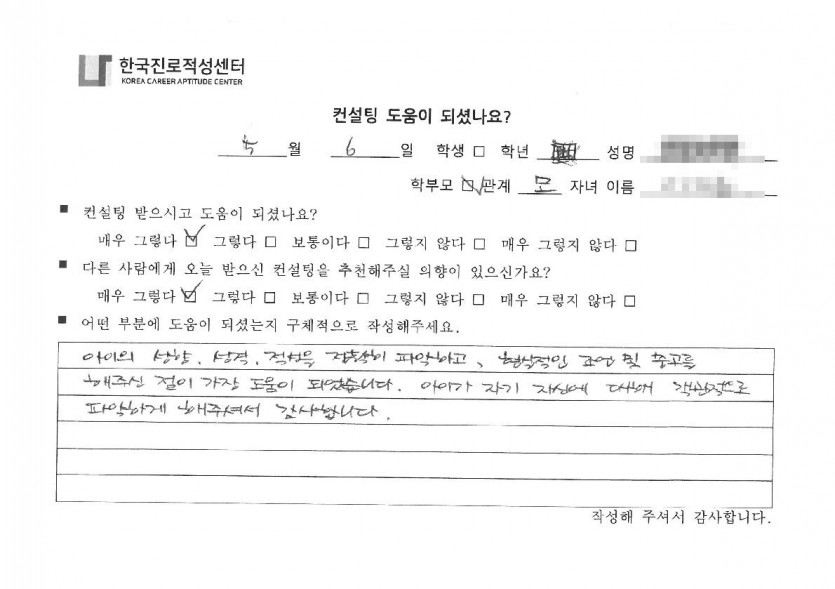 한국진로적성센터
KOREA CAREER APTITUDE CENTER
컨설팅 도움이 되셨나요?
5 월 6 일 학생 □ 학년 성명
학부모 ☑ 관계 모 자녀 이름
■ 컨설팅 받으시고 도움이 되셨나요?
매우 그렇다 ☑ 그렇다 □ 보통이다 □ 그렇지 않다 □ 매우 그렇지 않다 □
■ 다른 사람에게 오늘 받으신 컨설팅을 추천해주실 의향이 있으신가요?
매우 그렇다 ☑ 그렇다 □ 보통이다 □ 그렇지 않다 □ 매우 그렇지 않다 □
■ 어떤 부분에 도움이 되셨는지 구체적으로 작성해주세요.
아이의 성향, 성격, 적성을 정확히 파악하고, 현실적인 조언 및 충고를
해주신 점이 가장 도움이 되었습니다. 아이가 자기 자신에 대해 객관적으로
파악하게 해주셔서 감사합니다.
작성해 주셔서 감사합니다.